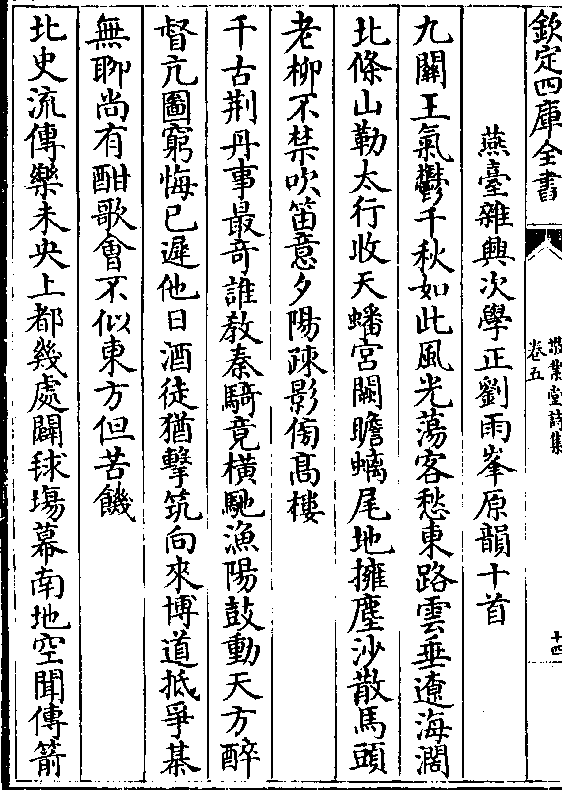 欽定四庫全書
敬業堂詩集
卷五
十四
燕臺雜興次學正劉雨峯原韻十首
九關王氣鬱千秋如此風光蕩客愁東路雲垂遼海濶
北條山勒太行收天蟠宮闕瞻螭尾地擁塵沙散馬頭
老柳不禁吹笛意夕陽疎影傍髙樓
千古荆丹事最竒誰教秦騎竟横馳漁陽鼓動天方醉
督亢圖窮悔已遲他日酒徒猶擊筑向來博道抵爭棊
無聊尚有酣歌會不似東方但苦饑
北史流傳樂未央上都幾處闢毬塲幕南地空聞傳箭